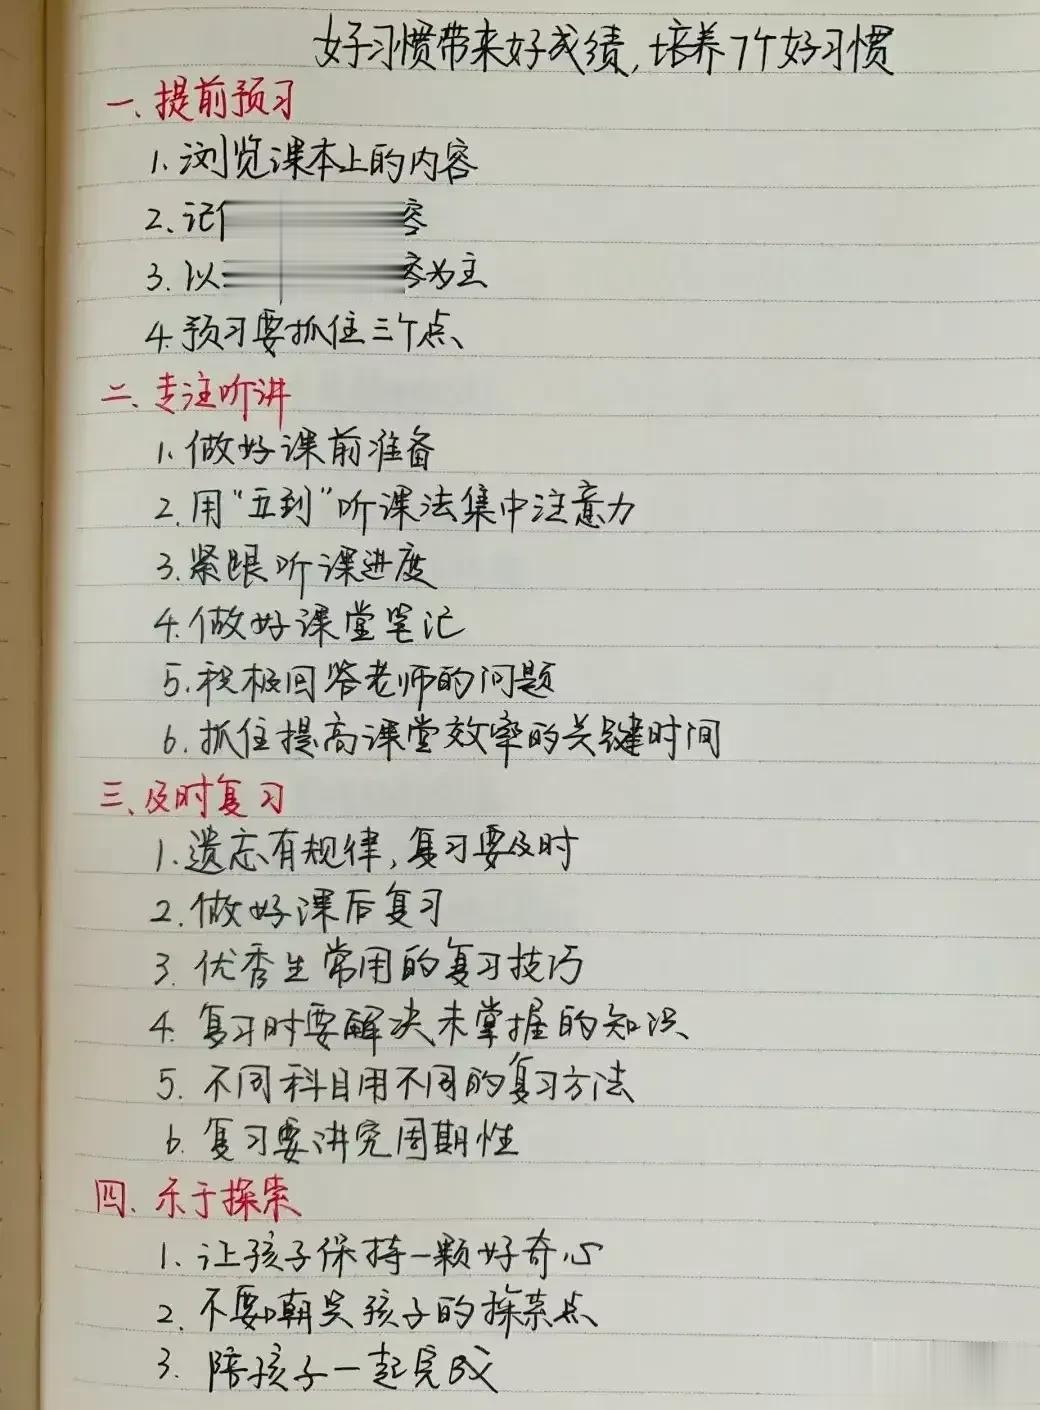 好习惯带来好成绩,培养7个好习惯
一、提前预习
1、浏览课本上的内容
2、记容
3、以容为主
4、预习要抓住三个点、
二、专注听讲
1、做好课前准备
2、用“五到”听课法集中注意力
3、紧跟听课进度
4、做好课堂笔记
5、积极回答老师的问题
6、抓住提高课堂效率的关键时间
三、及时复习
1、遗忘有规律,复习要及时
2、做好课后复习
3、优秀生常用的复习技巧
4、复习时要解决未掌握的知识
5、不同科目用不同的复习方法
6、复习要讲究周期性
四、乐于探索
1、让孩子保持一颗好奇心
2、不要嘲笑孩子的探索点
3、陪孩子一起完成